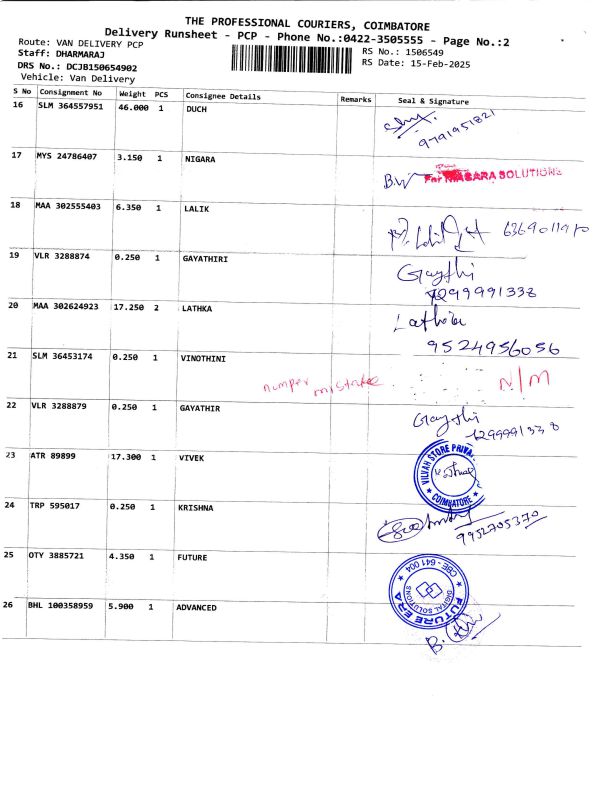 THE PROFESSIONAL COURIERS, COIMBATORE
Delivery Runsheet - PCP - Phone No.:0422-3505555 - Page No.:2
Route: VAN DELIVERY PCP
RS No.: 1506549
Staff: DHARMARAJ
RS Date: 15-Feb-2025
DRS No.: DCJB150654902
Vehicle: Van Delivery
S No Consignment No Weight PCS Consignee Details Remarks Seal & Signature
16 SLM 364557951 46.000 1 DUCH
9791951821
17 MYS 24786407 3.150 1 NIGARA
B.W For NIAGARA SOLUTIONS
18 MAA 302555403 6.350 1 LALIK
19 VLR 3288874 0.250 1 GAYATHIRI
Gaythi
7299991338
20 MAA 302624923 17.250 2 LATHKA
Lathika
9524956056
21 SLM 36453174 0.250 1 VINOTHINI
number mistake N/M
22 VLR 3288879 0.250 1 GAYATHIR
Gaythi
7299991338
23 ATR 89899 17.300 1 VIVEK
VILVAH STORE PRIVA
COIMBATORE
24 TRP 595017 0.250 1 KRISHNA
9952705370
25 OTY 3885721 4.350 1 FUTURE
CBE - 641 004
DIGITAL SOLUTIONS
FUTURE ERA
26 BHL 100358959 5.900 1 ADVANCED
B.